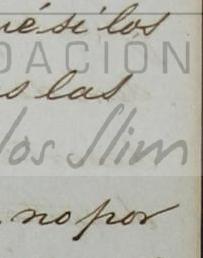 sé si los
DACIÓN
s las
los Slim
no por